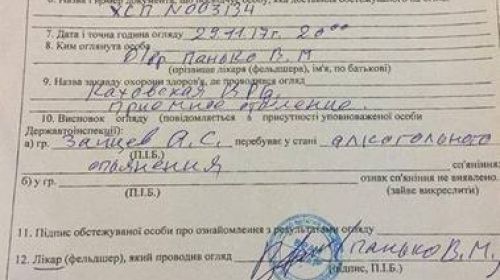 6. Назва і номер документа, що
ХСП №003134
7. Дата і точна година огляду 29.11.17г. 20⁰⁰
8. Ким оглянута особа
Панько В.М
(прізвище лікаря (фельдшера), ім'я, по батькові)
9. Назва закладу охорони здоров'я, де проводився огляд
Каховская
Приемное отделение.
10. Висновок огляду (повідомляється в присутності уповноваженої особи
Державтоінспекції):
а) гр. Зайцев А.С. перебуває у стані алкогольного
(П.І.Б.)
опьянения сп'яніння
б) у гр. ознак сп'яніння не виявлено.
(П.І.Б.) (зайве викреслити)
11. Підпис обстежуваної особи про ознайомлення з результатами огляду
12. Лікар (фельдшер), який проводив огляд Панько В.М.
(підпис, П.І.Б.)